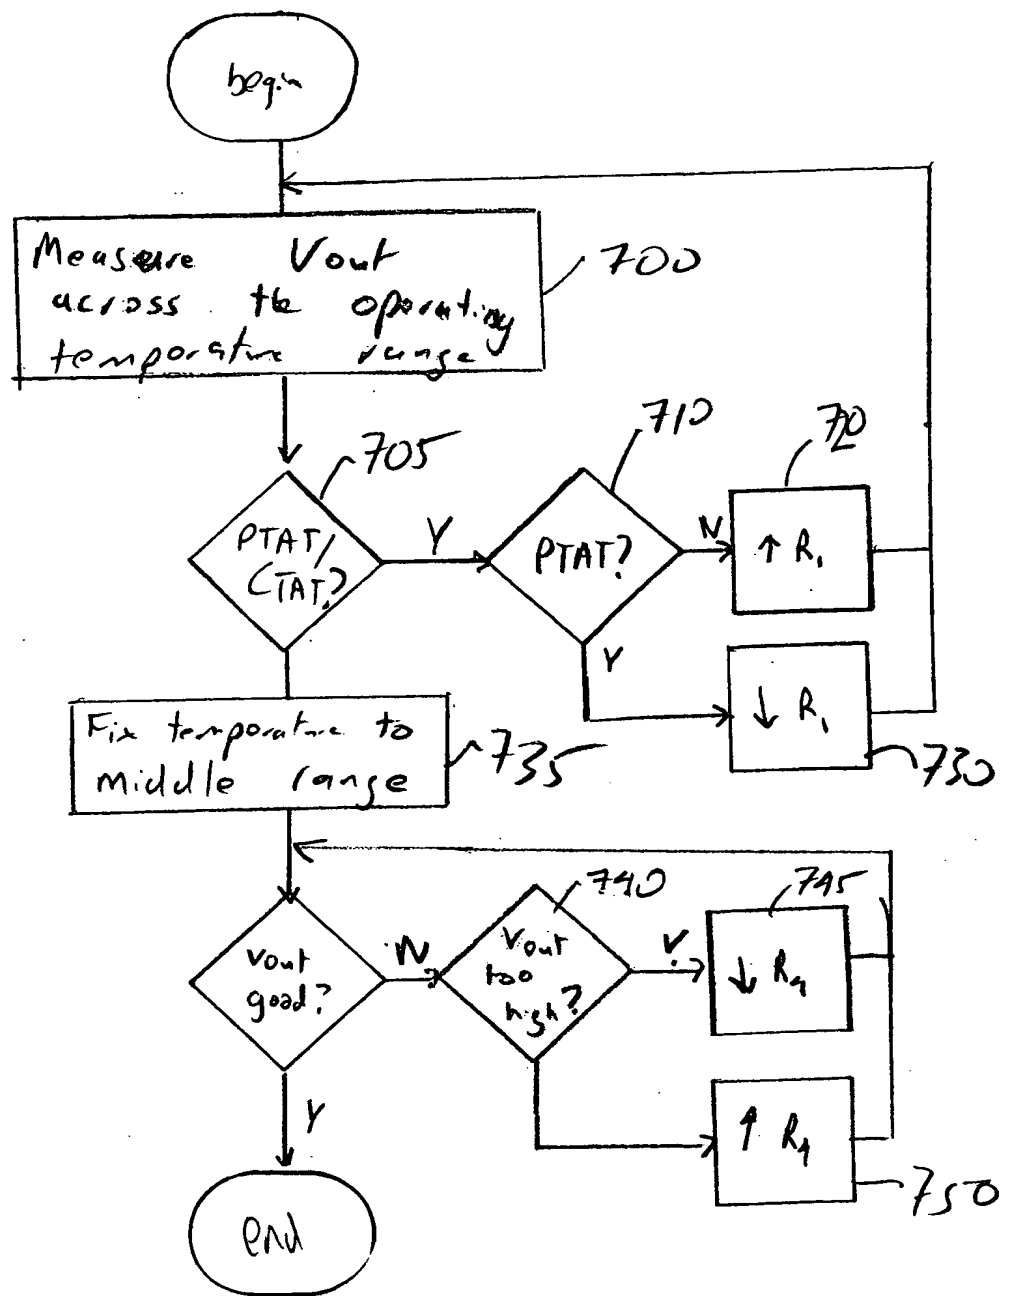 begin
Measure Vout
across the operating
temperature range
700
705
710
720
PTAT/
CTAT?
Y
PTAT?
N
↑ R1
Y
↓ R1
730
Fix temperature to
middle range
735
740
745
Vout
good?
N
Vout
too
high?
Y
↓ R4
Y
↑ R4
750
end